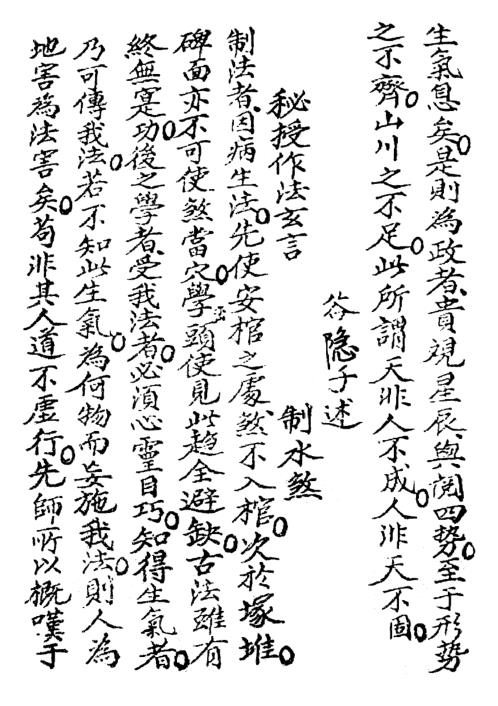 生氣息矣。是則為政者、貴視星辰與閲四勢。至于形勢
之不齊。山川之不足。此所謂天非人不成。人非天不固。
谷隐子述
秘授作法玄言
制水煞
制法者、因病生法。先使安棺之處煞不入棺。次於塚堆。
碑面亦不可使煞當穴。學頭使見此趨全避缺。古法雖有
終無寔功。後之學者、受我法者。必須心靈目巧。知得生氣者。
乃可傳我法。若不知此生氣。為何物而妄施我法。則人為
地害為法害矣。苟非其人道不虛行。先師所以概嘆于